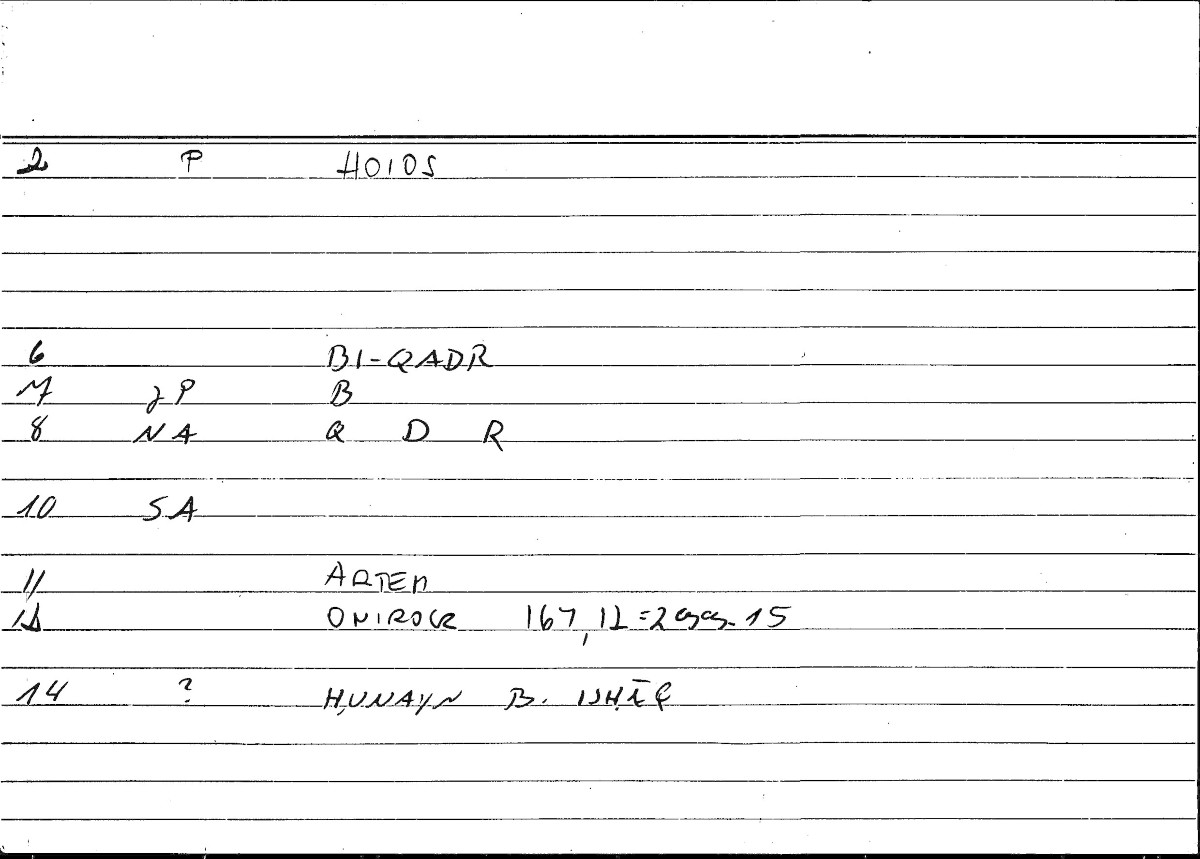 2 P HOIOS
6 BI-QADR
7 2P B
8 NA Q D R
10 SA
11 ARTEM
12 ONIROCR 167,12 = 15
14 ? ḤUNAYN B. ISḤĀQ